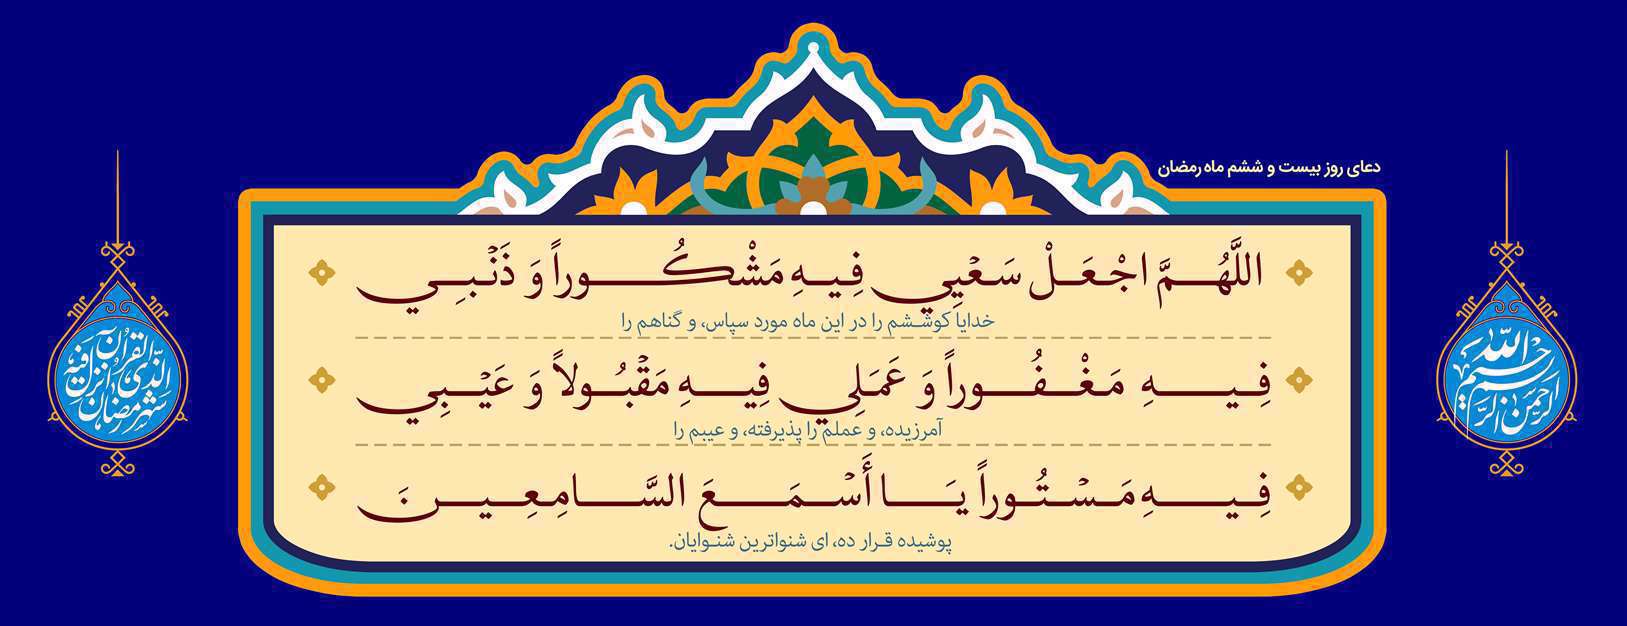 دعای روز بیست و ششم ماه رمضان
اللَّهُمَّ اجْعَلْ سَعْيِي فِيهِ مَشْكُوراً وَ ذَنْبِي
خدایا کوششم را در این ماه مورد سپاس، و گناهم را
فِيهِ مَغْفُوراً وَ عَمَلِي فِيهِ مَقْبُولاً وَ عَيْبِي
آمرزیده، و عملم را پذیرفته، و عیبم را
فِيهِ مَسْتُوراً يَا أَسْمَعَ السَّامِعِينَ
پوشیده قرار ده، ای شنواترین شنوایان.
بسم الله الرحمن الرحیم
شهر رمضان الذی انزل فیه القرآن